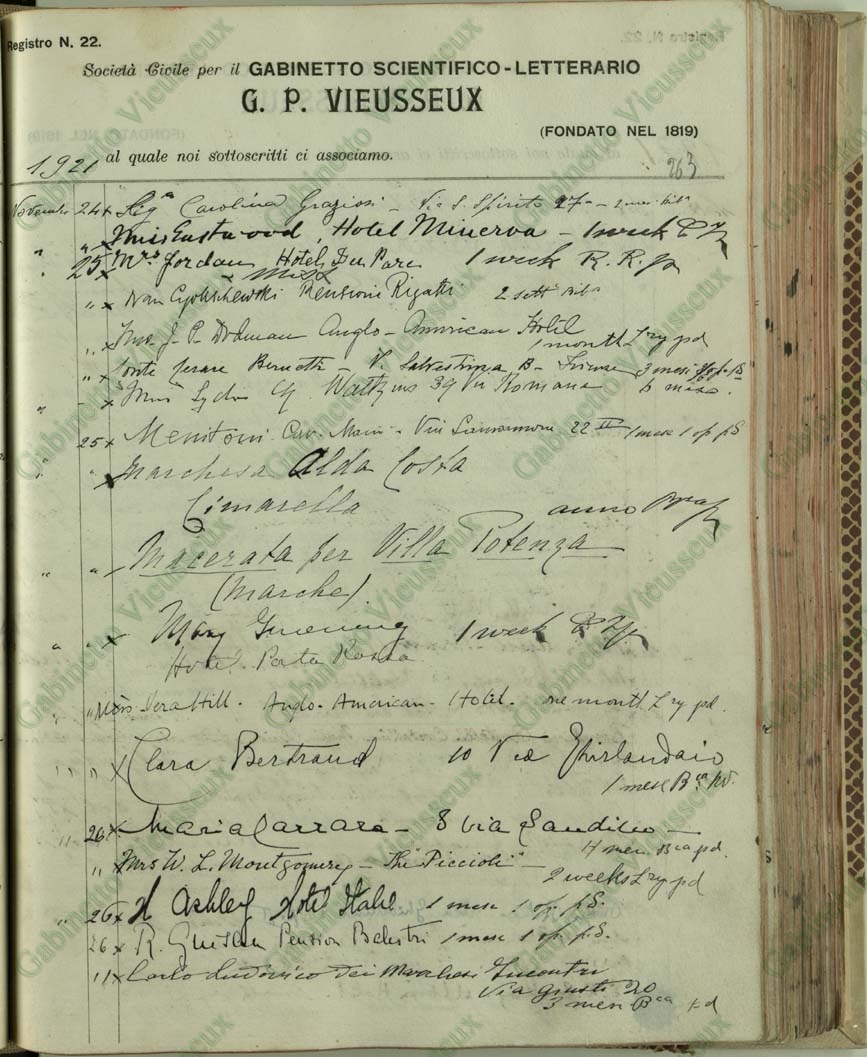 Registro N. 22.
Società Civile per il GABINETTO SCIENTIFICO-LETTERARIO
G. P. VIEUSSEUX
(FONDATO NEL 1819)
1921 al quale noi sottoscritti ci associamo. 263
Novembre 24 x Sig.a Carolina Graziosi - Via S. Spirito 27
" x Miss Eastwood, Hotel Minerva - 1 week
" 25 x Mrs Jordan Hotel Du Parc 1 week R. R.
Miss
" x Ivan Pensione Rigatti 2 sett
" x Mrs. J. P. Dodman Anglo-American Hotel
1 month L ry pd
" x Conte V. Salvestrina 8 - Firenze 3 mesi
" x Miss Lydia Watkins 39 Via Romana 6 mesi.
25 x Menitoni Cav. Mario - Via 22 II 1 mese 1 op p.S
" x Marchesa Alda Costa
Cimarella anno
" " Macerata per Villa Potenza
(Marche)
" " x Mary 1 week
Hotel Porta Rossa
" " Miss Vera Hill. Anglo-American-Hotel. one month L ry pd.
" " x Clara Bertrand 10 Via Ghirlandaio
1 mese B.ca pd.
" 26 x Maria Carrara - 8 Via
4 mesi B.ca pd.
" Mrs W. L. Montgomery - The "Piccioli" -
2 weeks L ry pd
" 26 x H Ashley Hotel Italie 1 mese 1 op. p.S.
26 x R. Pension Balestri 1 mese 1 op. p.S.
" x Carlo Ludovico dei Marchesi Incontri
Via Giusti 20
3 mesi B.ca pd
Gabinetto Vieusseux